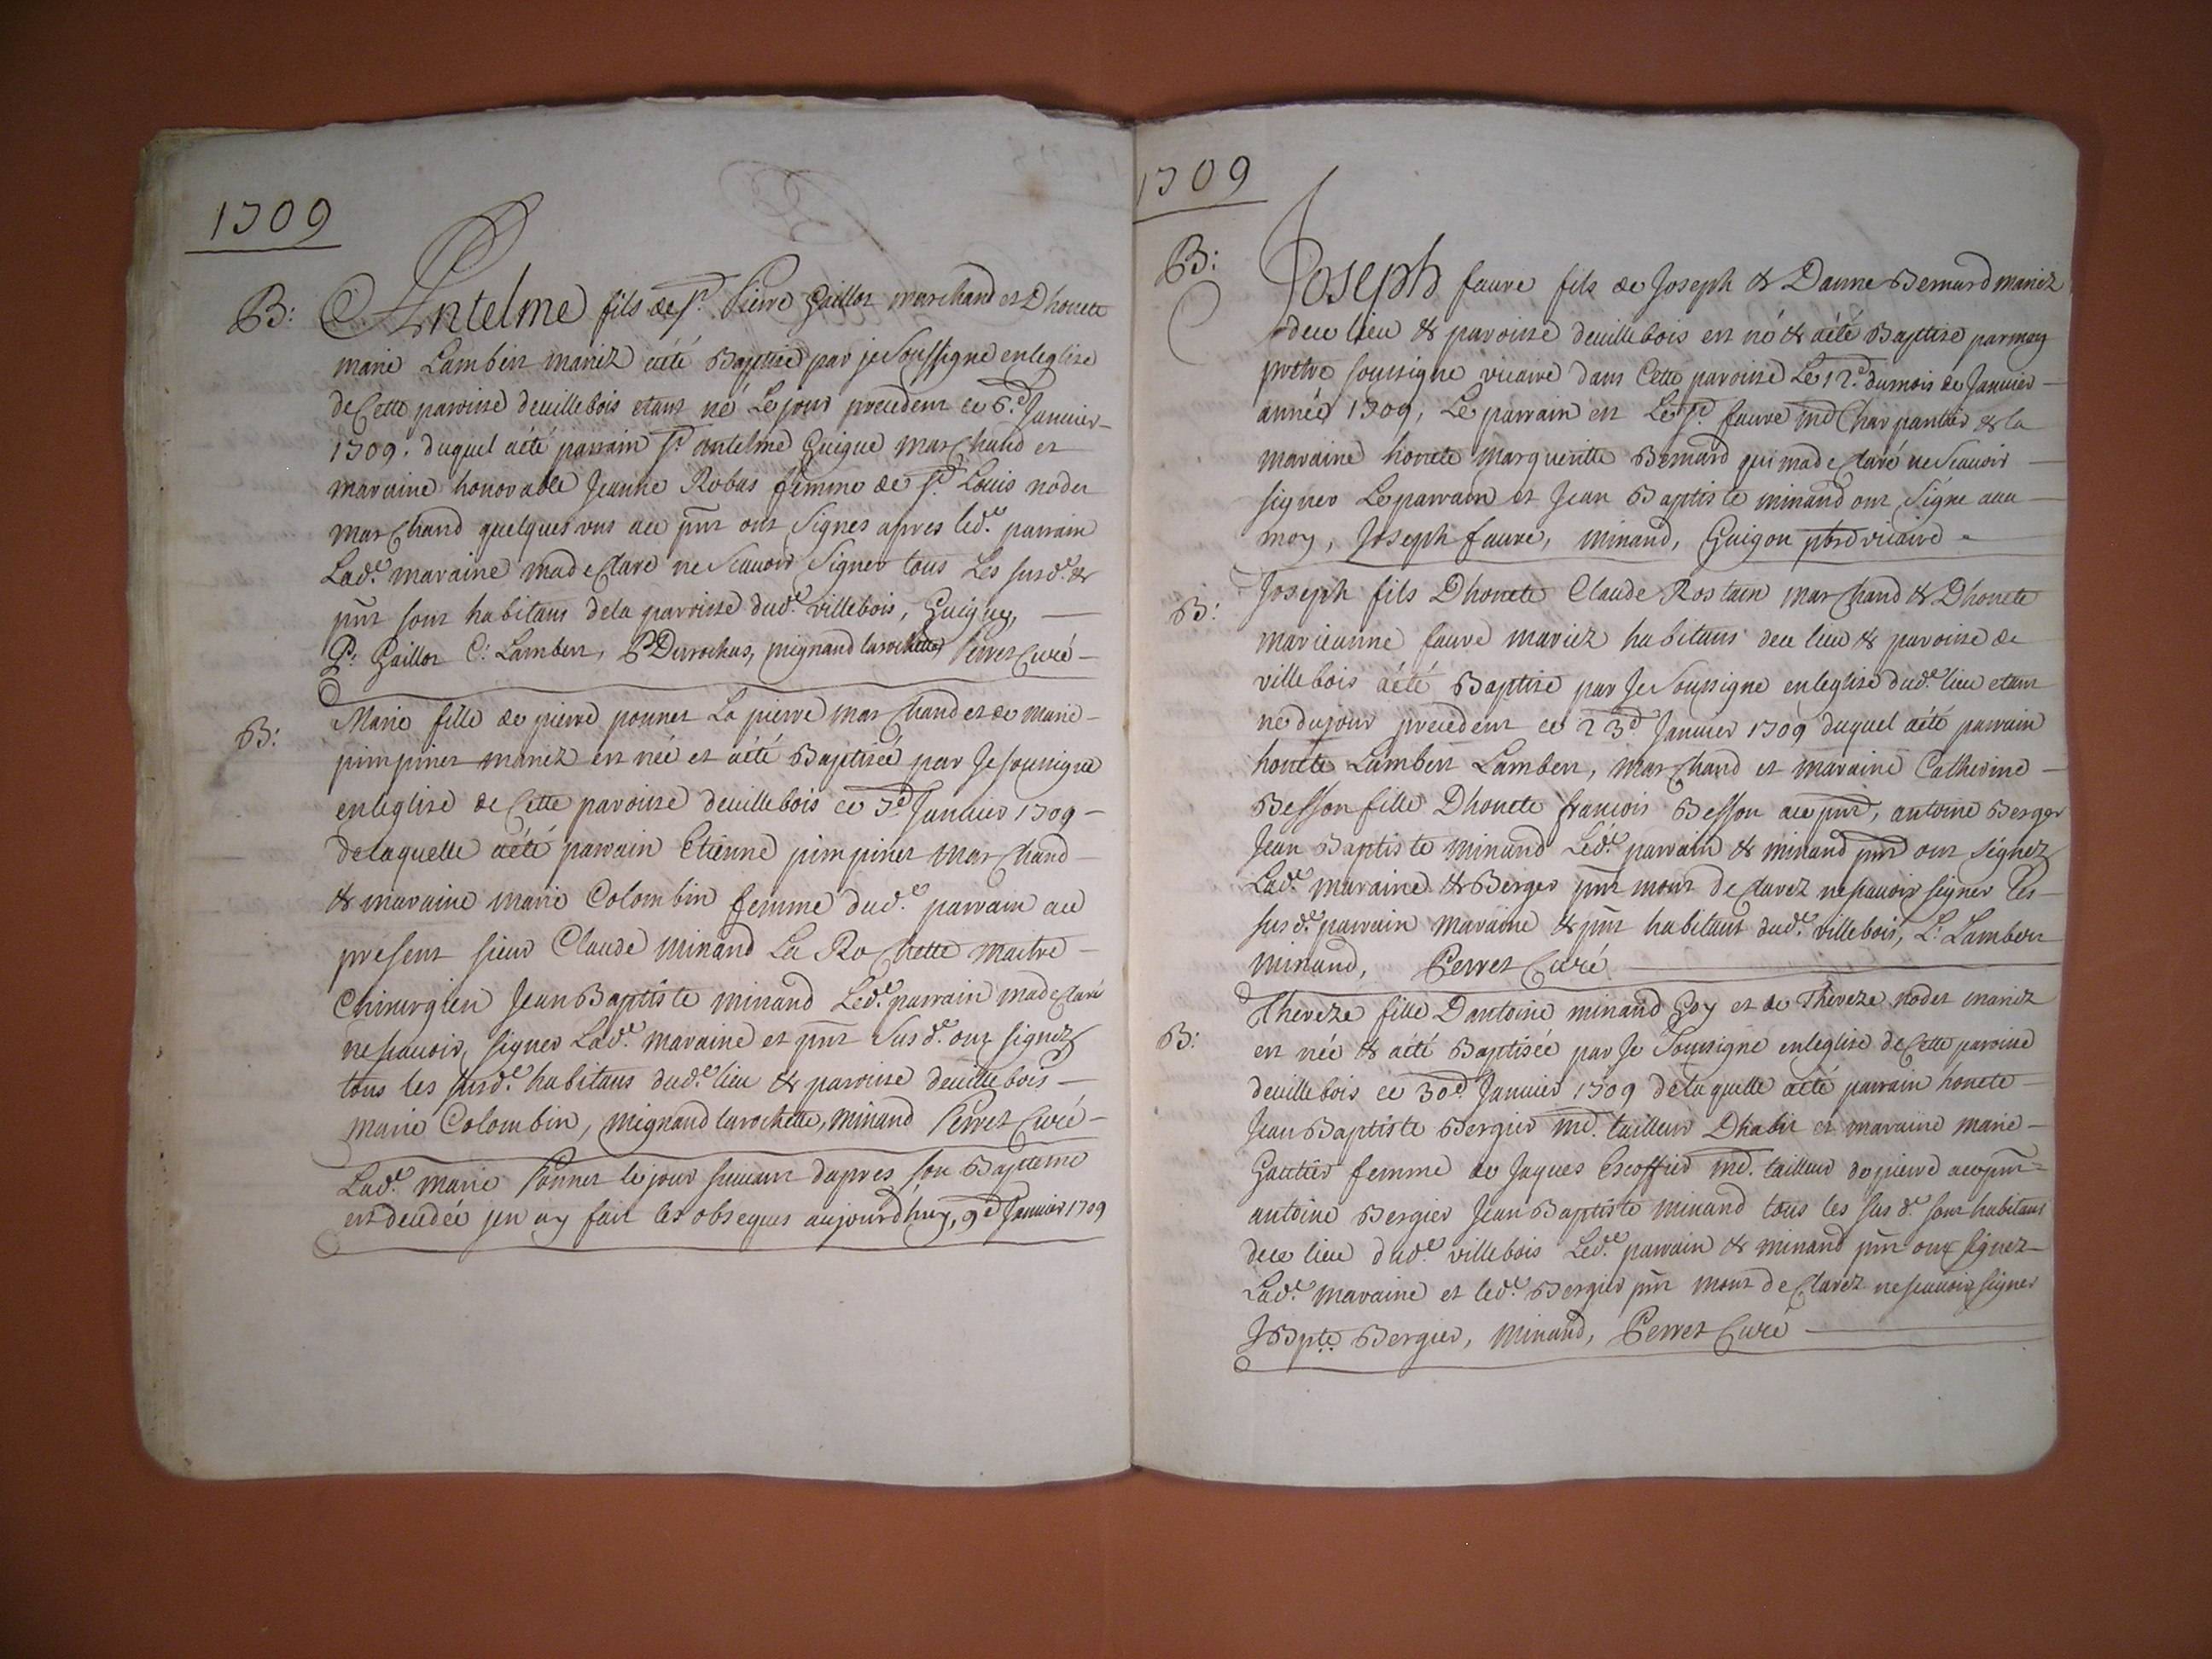 1709
B: Antelme fils de Sr. Pierre Gaillot marchand et Dhonete
marie Lambert mariez aété Baptisé par je Soussigné enleglise
deCette paroisse devillebois etant né Lejour precedent ce 6.e Janvier
1709. duquel aété parrain Sr. antelme Guigue marchand et
maraine honorable Jeanne Robas femme de Sr. Louis nodet
marchand quelques uns des pnt ont Signes apres led.t parrain
Lad.e maraine madeclaré ne Scavoir Signer tous Les susd. &
pnt sont habitans dela paroisse dud.t villebois, Guigue,
P: Gaillot C: Lambert, Durochas, mignand larochette Perret Curé
B: Marie fille de pierre ponnet La pierre marchand et de marie
pimpinet mariez est née et aété Baptisée par Je soussigne
enleglise de Cette paroisse devillebois ce 7.e Janvier 1709
delaquelle aété parrain Etienne pimpinet marchand
& maraine marie Colombin femme dud.t parrain au
present sieur Claude minand La Rochette maitre
Chirurgien Jean Baptiste minand Led.t parrain madeclaré
nescavoir signer Lad.e maraine et pnt Susd. ont signez
tous les susd.t habitans dud.t lieu & paroisse devillebois
marie Colombin, mignand larochette, minand Perret Curé
Lad.e marie Ponnet lejour suivant dapres son Bapteme
est decedée jen ay fait les obseques aujourdhuy, 9.e Janvier 1709
1709
B: Joseph faure fils de Joseph & Danne Bernard mariez
dece lieu & paroisse devillebois est né & aété Baptisé parmoy
prêtre soussigne vicaire dans Cette paroisse Le 12.e dumois de Janvier
année 1709, Le parrain est Le Sr. faure md Charpantier & la
maraine honete margueritte Bernard qui madeclaré ne Scavoir
signer Leparrain et Jean Baptiste minand ont Signe avec
moy, Joseph faure, minand, Guigou pbre vicaire
B: Joseph fils Dhonete Claude Rostain marchand & Dhonete
marieanne faure mariez habitans dece lieu & paroisse de
villebois aété Baptisé par Je Soussigne enleglise dud.t lieu etant
né dujour precedent ce 23.e Janvier 1709 duquel aété parrain
honete Lambert Lambert, marchand et maraine Catherine
Besson fille Dhonete françois Besson au pnt, antoine Berger
Jean Baptiste minand Led.t parrain & minand pnt ont signez
Lad.e maraine & Berger pnt mont declarez nescavoir signer Les
susd.t parrain maraine & pnt habitans dud.t villebois, L: Lambert
minand, Perret Curé
B: Thereze fille Dantoine minand Goy et de Thereze nodet mariez
est née & aété Baptisée par Je Soussigne enleglise deCette paroisse
devillebois ce 30.e Janvier 1709 delaquelle aété parrain honete
Jean Baptiste Bergier md. tailleur Dhabit et maraine marie
Gautier femme de Jaques Escoffier md. tailleur de pierre au pnt
antoine Bergier Jean Baptiste minand tous les susd. sont habitans
dece lieu dud.t villebois Led.t parrain & minand pnt ont signez
Lad.e maraine et led.t Bergier pnt mont declarez nescavoir signer
J Bpte Bergier, minand, Perret Curé